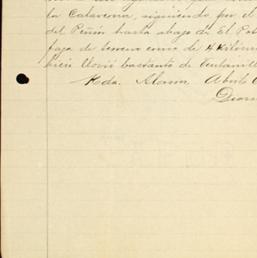 la Calavera, siguiendo por el
del Peñón hasta abajo de El Pot
faja de terreno como de 4 Kilóm
bien llovió bastante de Ventanill
Hda. Alamo, Abril